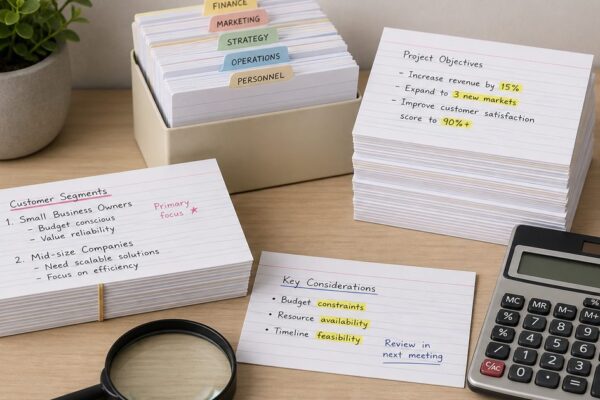 FINANCE
MARKETING
STRATEGY
OPERATIONS
PERSONNEL
Project Objectives
- Increase revenue by 15%
- Expand to 3 new markets
- Improve customer satisfaction
score to 90%+
Customer Segments
1. Small Business Owners
- Budget conscious
- Value reliability
2. Mid-size Companies
- Need scalable solutions
- Focus on efficiency
Primary
focus ★
Key Considerations
• Budget constraints
• Resource availability
• Timeline feasibility
Review in
next meeting
MC MR M- M+
% 7 8 9
% 4 5 6
C/AC 0 •